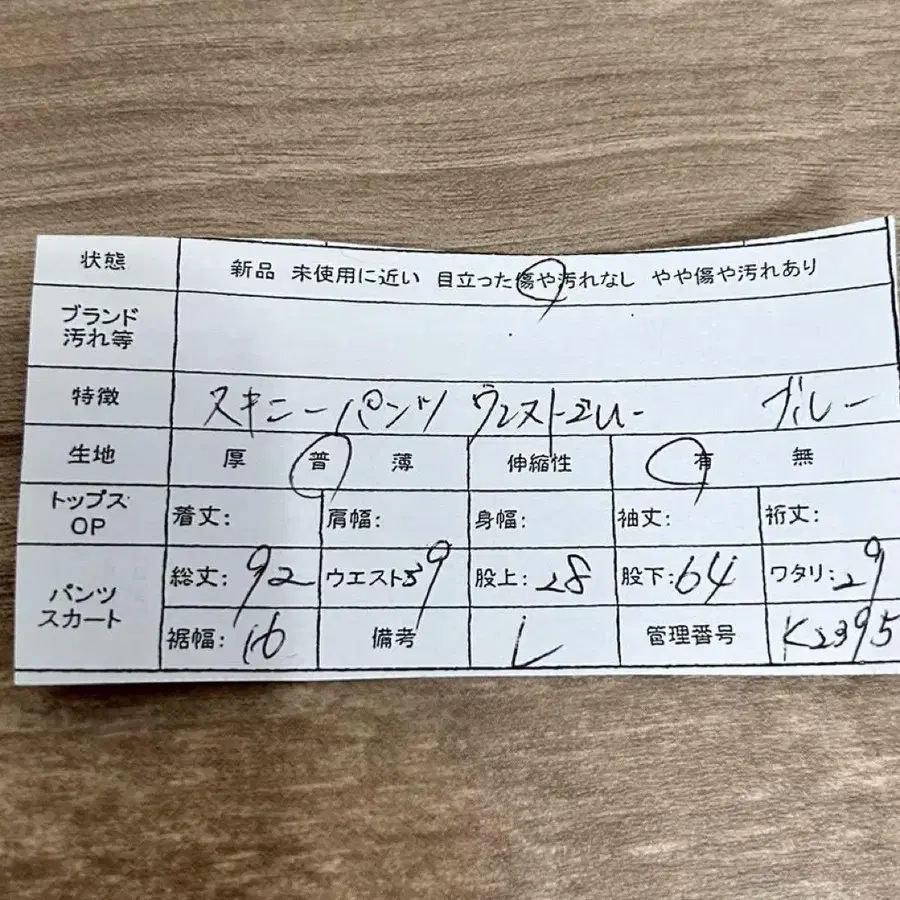 状態 新品 未使用に近い 目立った傷や汚れなし やや傷や汚れあり
ブランド
汚れ等
特徴 スキニーパンツ ウエストゴム ブルー
生地 厚 普 薄 伸縮性 有 無
トップス
OP
着丈: 肩幅: 身幅: 袖丈: 裄丈:
パンツ
スカート
総丈: 92 ウエスト39 股上: 28 股下: 64 ワタリ: 29
裾幅: 16 備考 L 管理番号 K2395